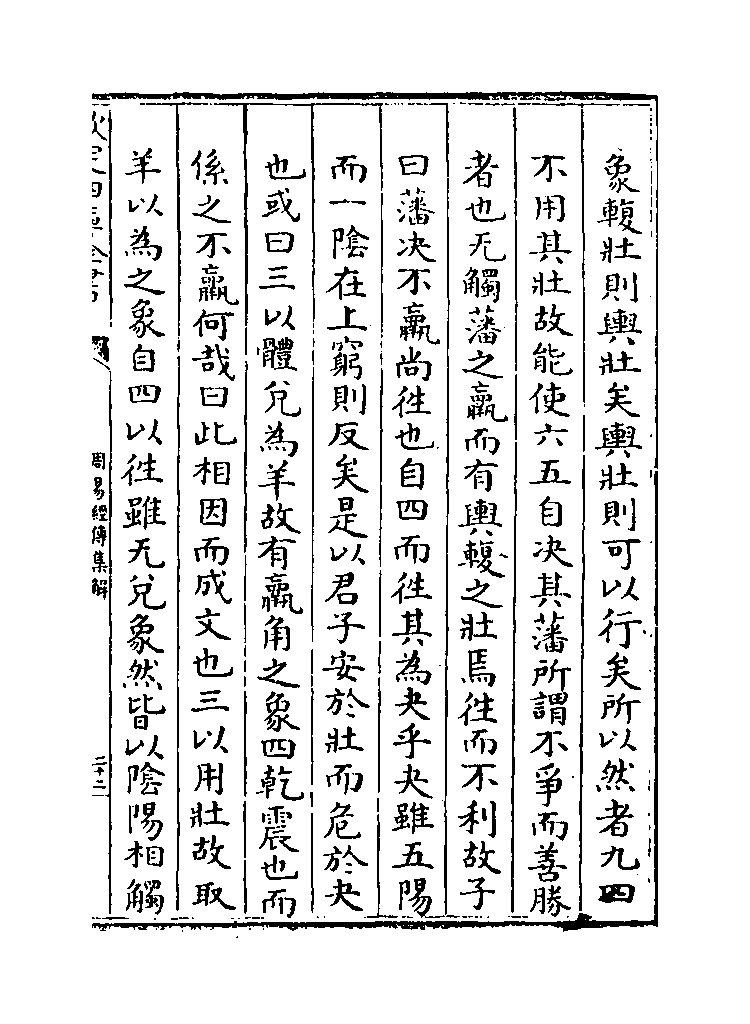 象輹壯則輿壯矣輿壯則可以行矣所以然者九四
不用其壯故能使六五自决其藩所謂不爭而善勝
者也无觸藩之羸而有輿輹之壯焉徃而不利故子
曰藩决不羸尚徃也自四而徃其為夬乎夬雖五陽
而一陰在上窮則反矣是以君子安於壯而危於夬
也或曰三以體兌為羊故有羸角之象四乾震也而
係之不羸何哉曰此相因而成文也三以用壯故取
羊以為之象自四以徃雖无兌象然皆以陰陽相觸
欽定四庫全書
周易經傳集解
二十二